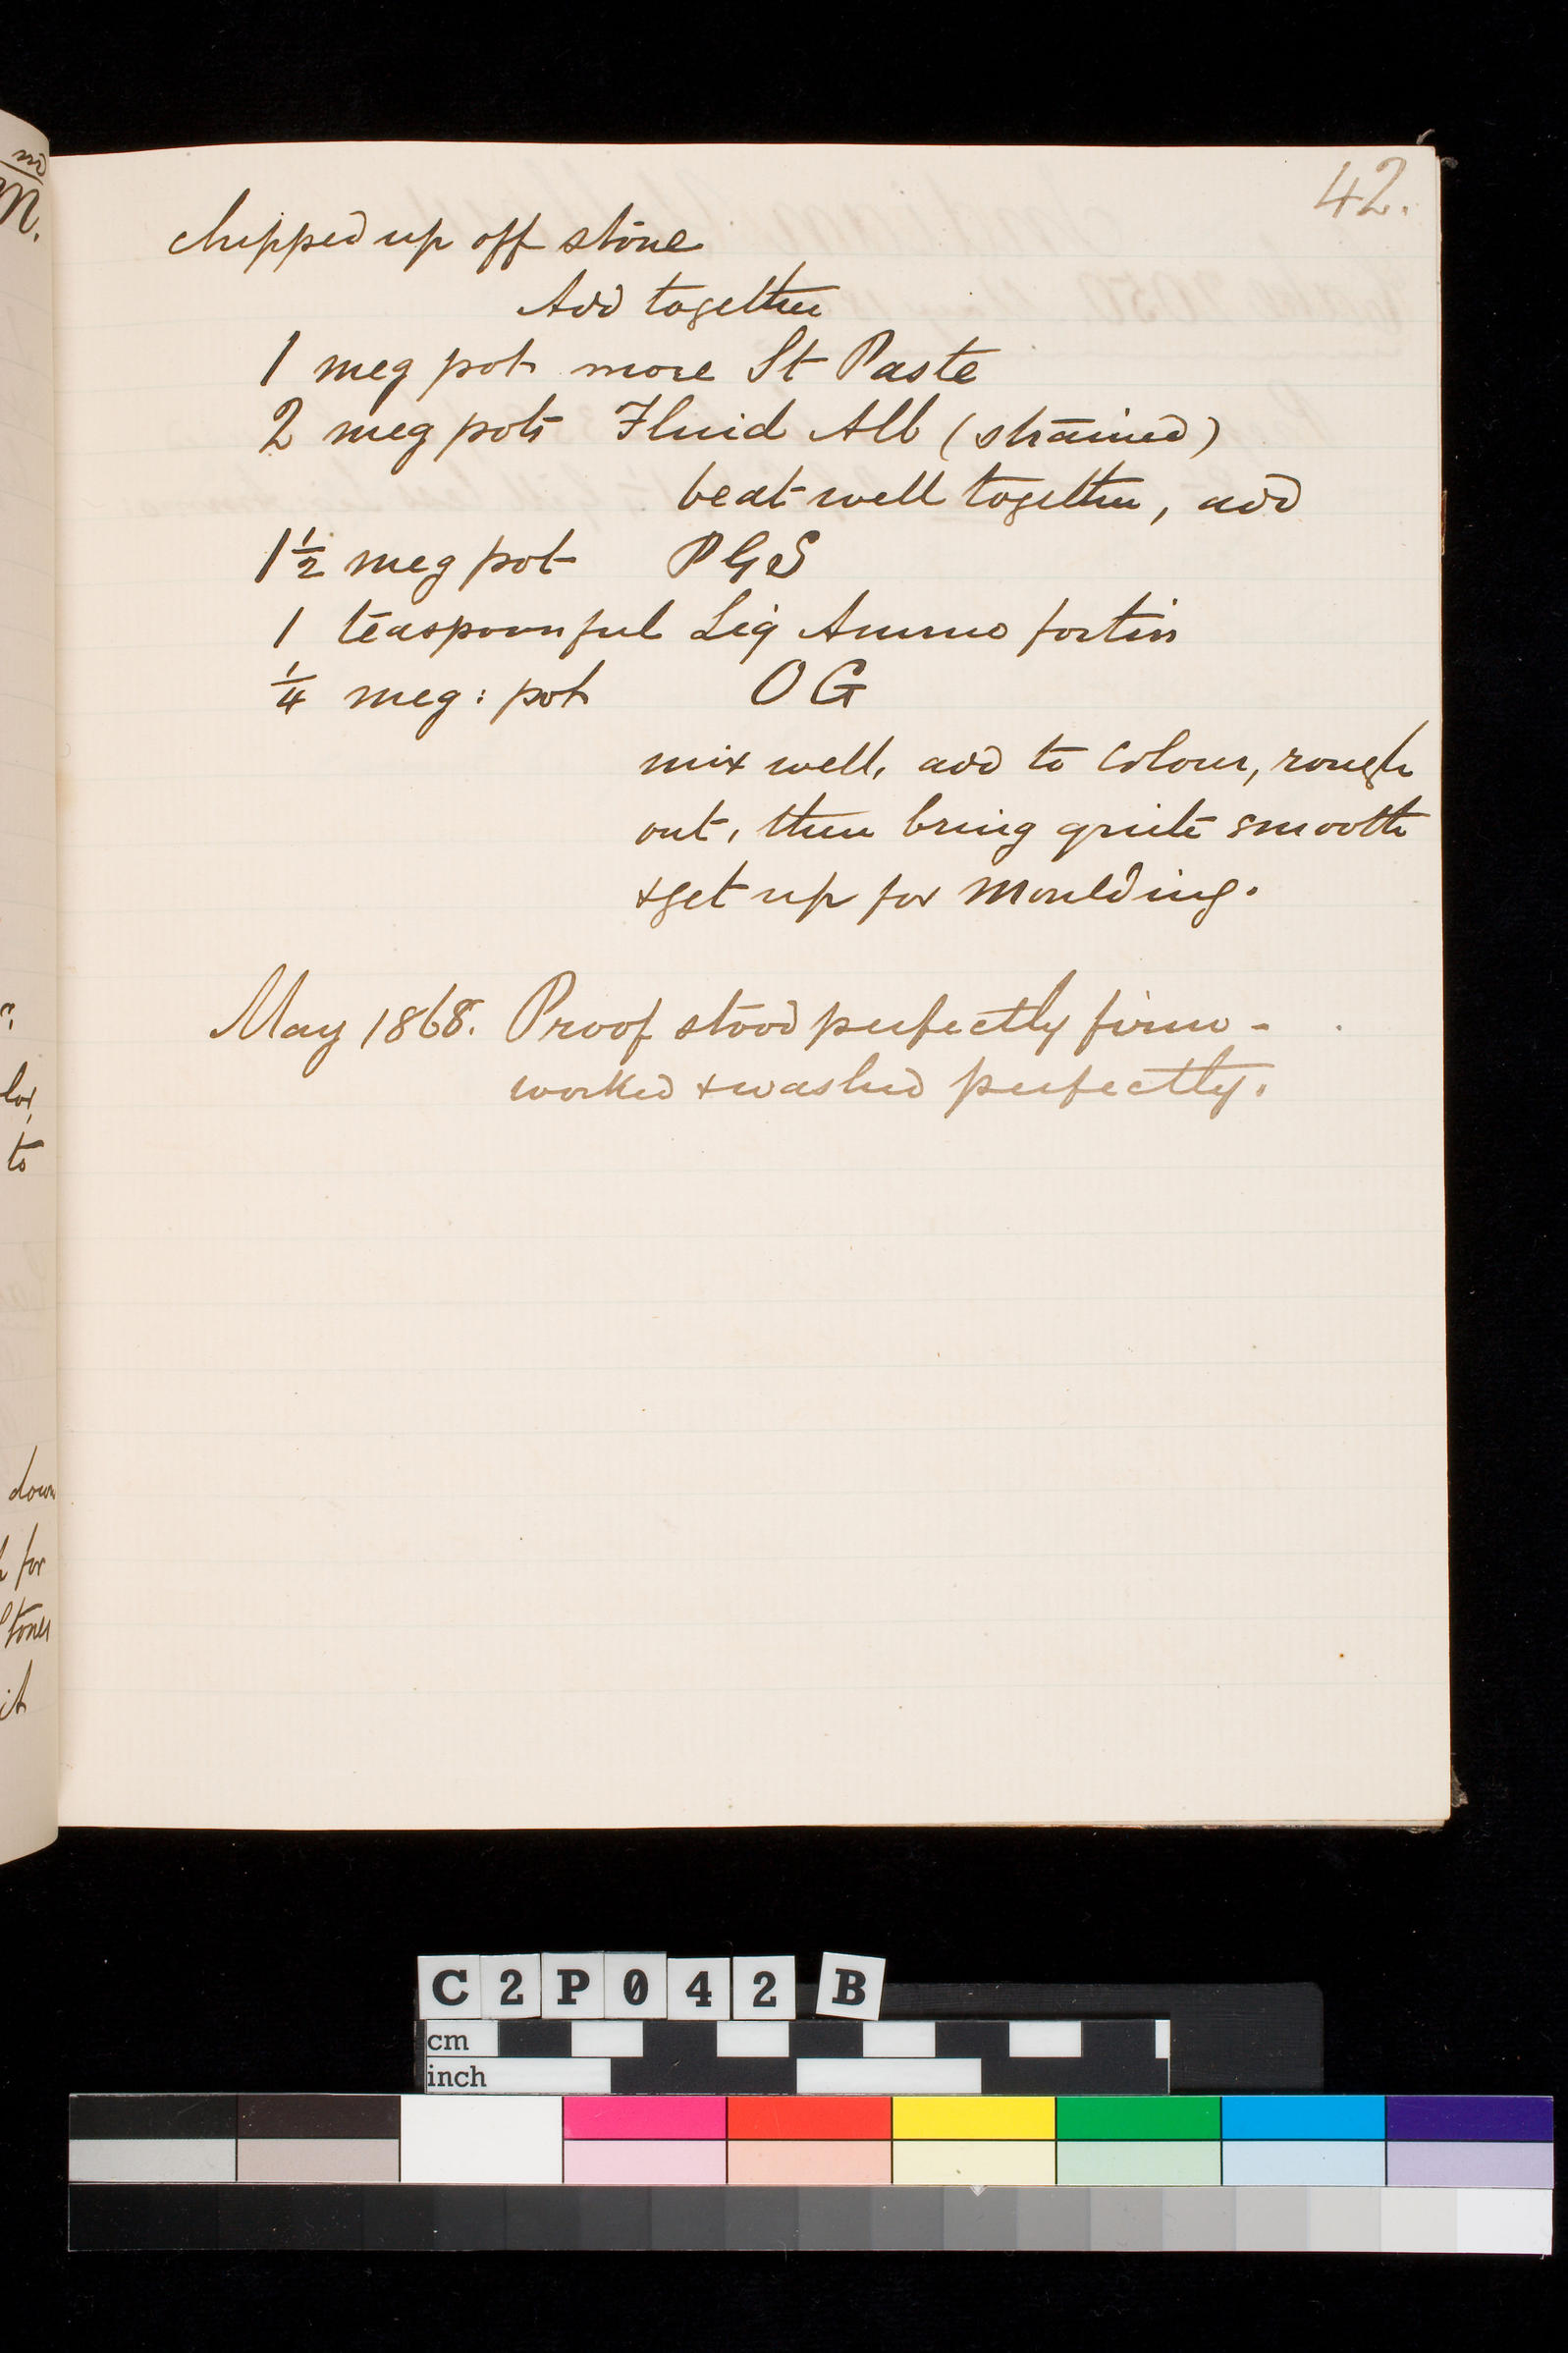 42.
chipped up off stone
Add together
1 meg pot more St Paste
2 meg pots Fluid Alb (strained)
beat well together, add
1½ meg pot PGS
1 teaspoonful Liq Ammo fortiss
¼ meg: pot OG
mix well, add to Colour, rough
out, then bring quite smooth
& get up for Moulding.
May 1868. Proof stood perfectly firm -
worked & washed perfectly.
lor,
to
down
for
Stones
it
C2P042 B
cm
inch